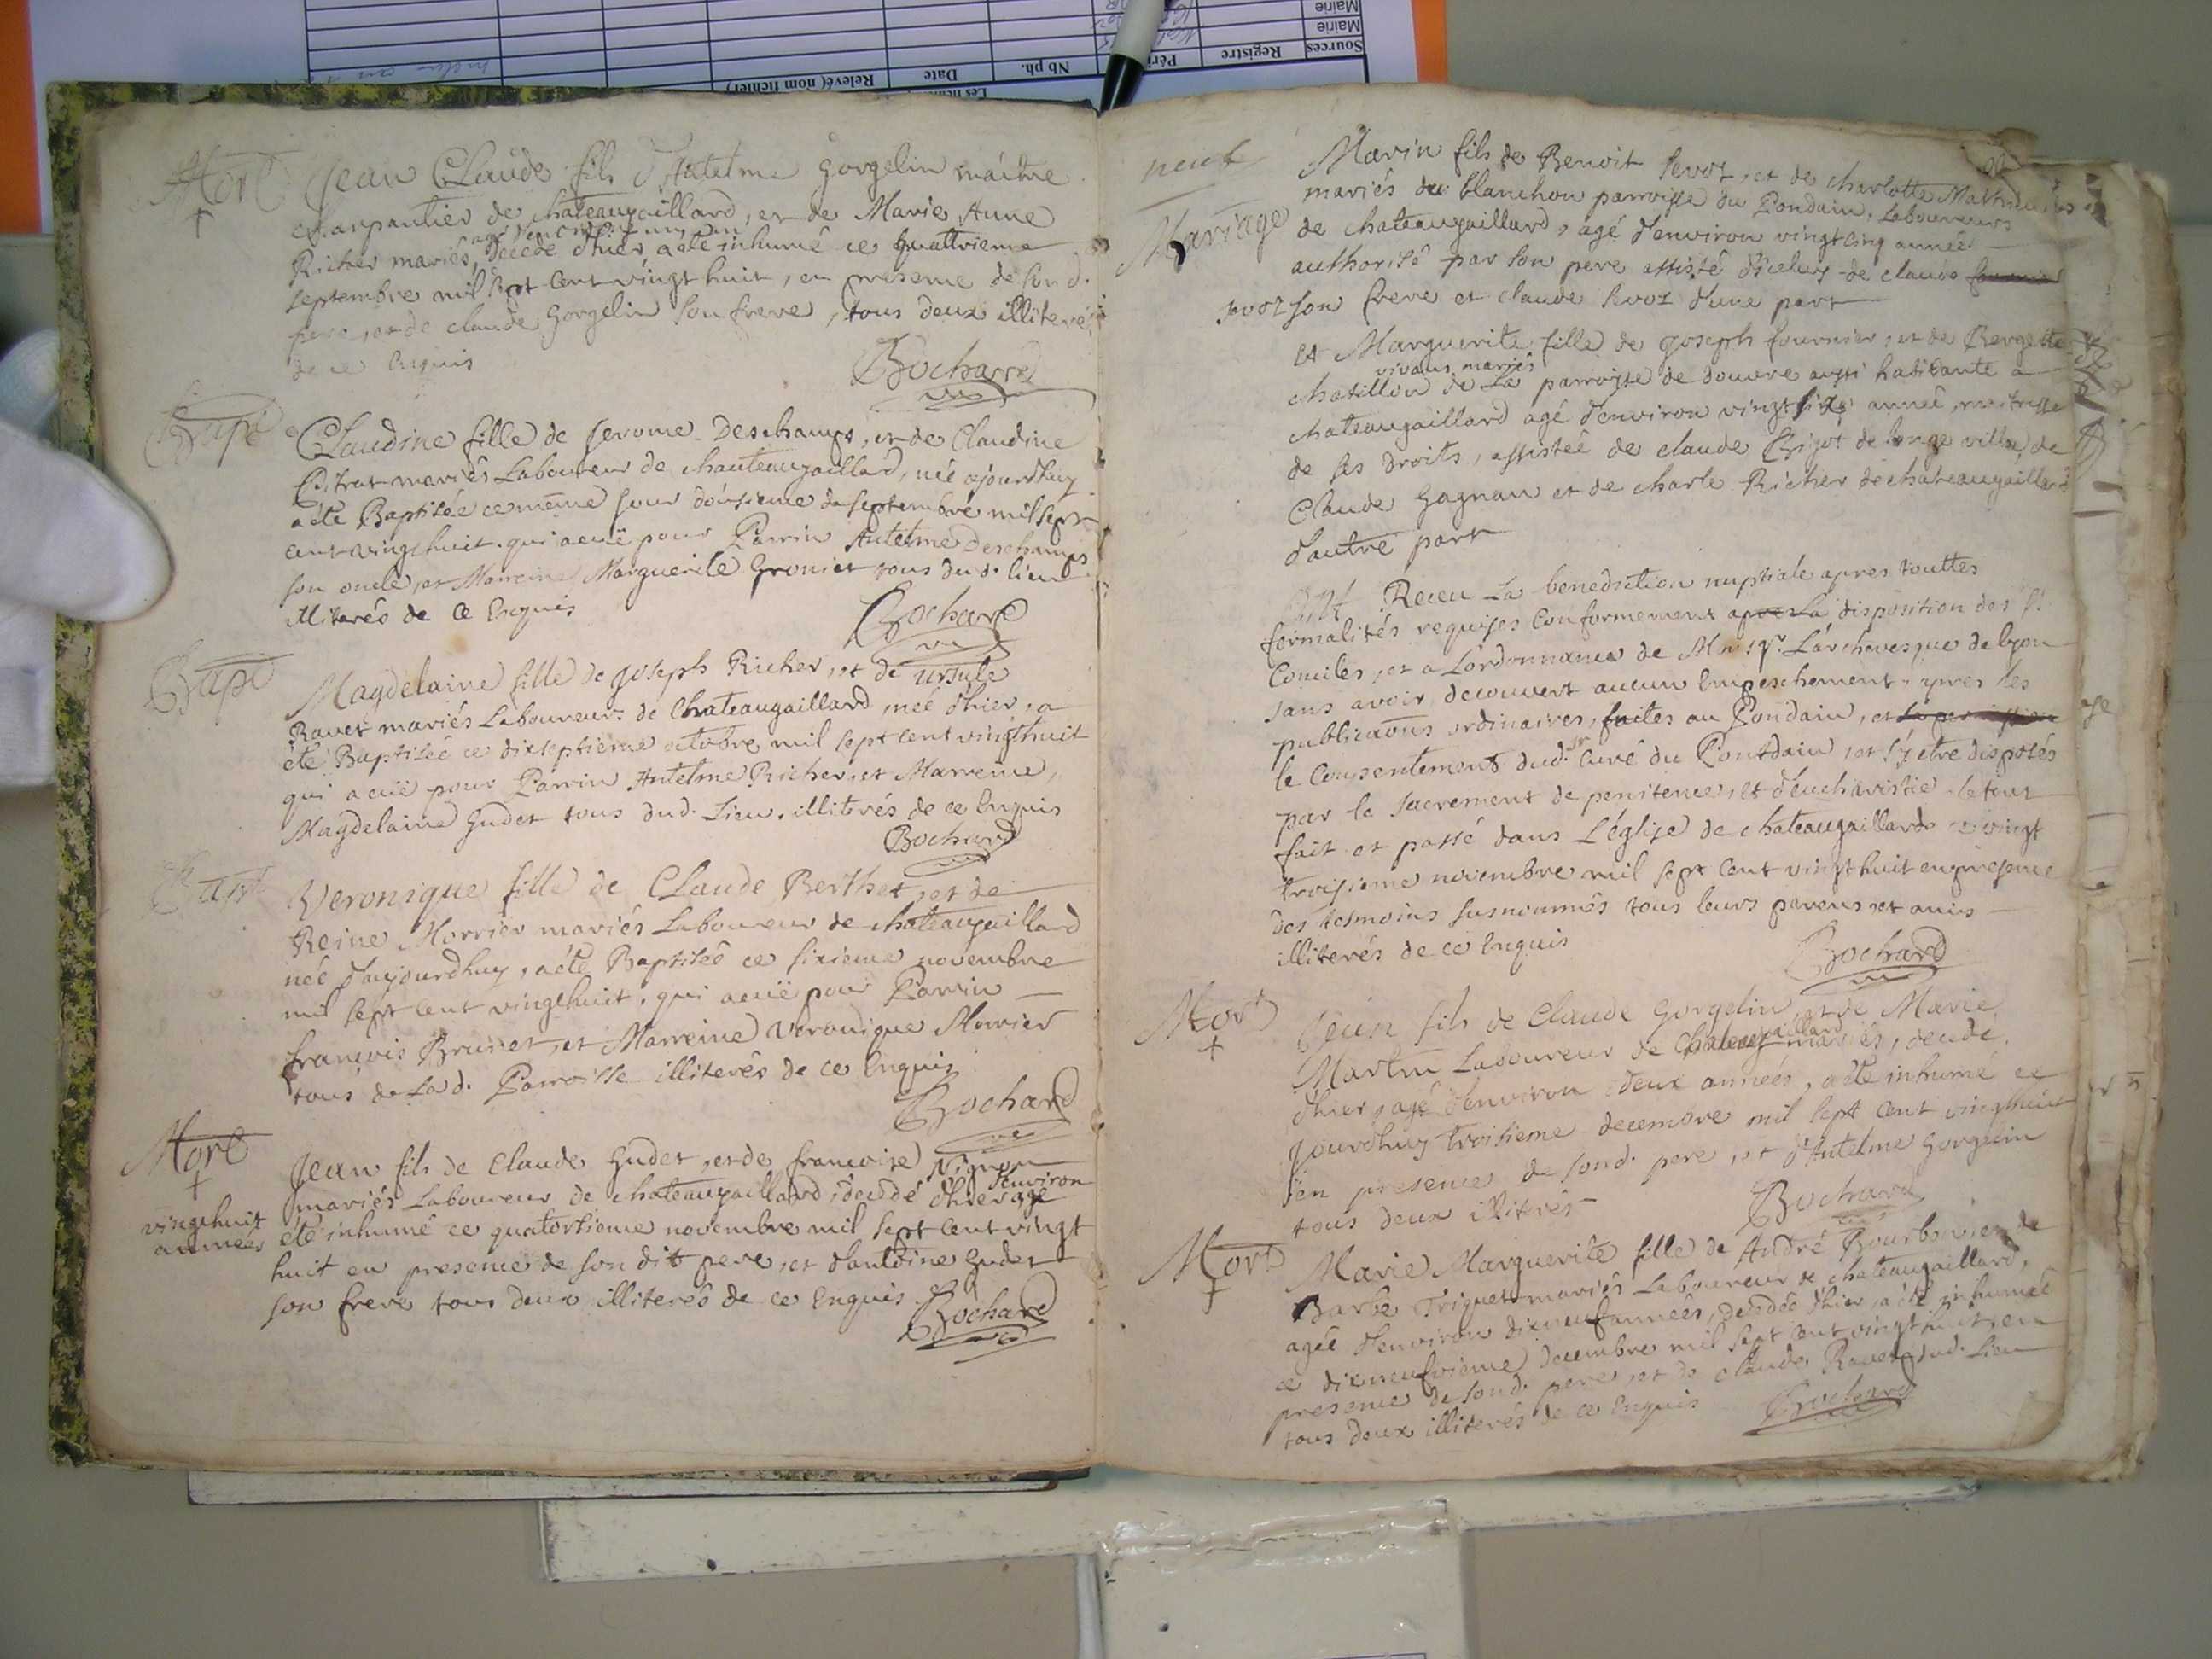 Sources
Registre
Péri
Nb ph.
Date
Relevé( nom fichier)
Mairie
Mairie
Mort
Jean Claude fils d'Antelme Gorgelin maitre
charpantier de chateaugaillard, et de Marie Anne
agé d'environ un an
Richer mariés, decedé d'hier, a été inhumé ce quattrieme
septembre mil sept cent vingt huit, en presence de son d.
pere, et de claude Gorgelin son frere, tous deux illiterés
de ce enquis
Bochard
Bapt
Claudine fille de Jerome Deschamps, et de Claudine
Citrat mariés Laboureur de chauteaugaillard, née ajourdhuy
a été Baptisée ce méme jour dousieme de septembre mil sept
cent vingt huit. qui a eüe pour Parrin Antelme Deschamps
son oncle, et Marreine Marguerite Groniet tous du d. lieu
illiterés de ce enquis
Bochard
Bapt
Magdelaine fille de Joseph Richer, et de ursule
Ravet mariés Laboureurs de Chateaugaillard, née d'hier, a
été Baptisée ce dixseptieme octobre mil sept cent vingthuit
qui a eüe pour Parrin Antelme Richer, et Marreine,
Magdelaine Gudet tous dud. Lieu, illiterés de ce enquis
Bochard
Bapt
Veronique fille de Claude Berthet, et de
Reine Morrier mariés Laboureur de chateaugaillard
née d'aujourdhuy, a été Baptisée ce sixieme novembre
mil sept cent vingthuit. qui a eüe pour Parrin
francois Brunet, et Marreine Veronique Morrier
tous de la d. Parroisse illiterés de ce enquis
Bochard
Mort
Jean fils de Claude Gudet, et de francoise Vignon
mariés Laboureur de chateaugaillard, decedé d'hier agé d'environ
vingthuit années
été inhumé ce quatorsieme novembre mil sept cent vingt
huit en presence de son dit pere, et d'antoine Gudet
son frere tous deux illiterés de ce enquis
Bochard
neuf
Mariage
Marin fils de Benoit Sevoz, et de charlotte
mariés du blanchon parroisse du Pondain, Laboureurs
de chateaugaillard, agé d'environ vingtcinq année
authorisé par son pere assisté d'iceluy de claude
sevoz son frere et claude Sevoz d'une part
et Marguerite fille de Joseph fournier, et de Bergette
vivans mariés
chatillon de la parroisse de douvre aussi habitante a
chateaugaillard agé d'environ vingt six année, maitresse
de ses droits, assistée de claude Brigot de longe ville, de
Claude Gagnau et de charle Richer de chateaugaillard
d'autre part
ont Receu La benediction nuptiale apres touttes
formalités requises Conformement a la disposition des Sts
Conciles, et a L'ordonnance de Mnsgr. L'archevesque de lyon
sans avoir decouvert aucun empeschement, apres les
publications ordinaires, faites au Pondain, et
le consentement dud. Sr Curé du Pontdain, et s'y etre disposés
par le sacrement de penitence, et d'eucharistie. le tout
fait et passé dans L'église de chateaugaillard ce vingt
troisieme novembre mil sept cent vingt huit en presence
des tesmoins susnommés tous leurs parens et amis
illiterés de ce enquis
Bochard
Mort
Jean fils de Claude Gorgelin, et de Marie
Martin Laboureur de Chateaugaillard mariés, decede
d'hier, agé d'environ deux années, a été inhumé ce
jourdhuy troisieme decembre mil sept cent vingthuit
en presence de sond. pere, et d'Antelme Gorgelin
tous deux illiterés
Bochard
Mort
Marie Marguerite fille de André Bourbon, et de
Barbe Triquet mariés Laboureur de chateaugaillard,
agée d'environ dixneuf années, decedée d'hier, a été inhumée
ce dixneufvieme decembre mil sept cent vingt huit, en
presence de sond. pere, et de claude Ravet, dud. Lieu
tous deux illiterés de ce enquis
Bochard